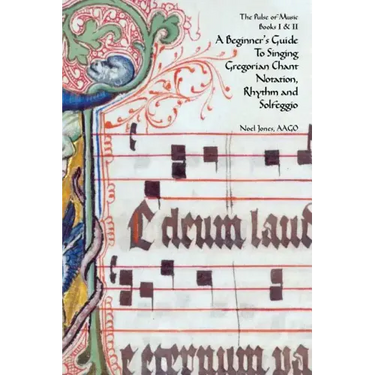 The Pulse of Music
Books I & II
A Beginner's Guide
To Singing
Gregorian Chant
Notation,
Rhythm and
Solfeggio
Noel Jones, AAGO
E deum laud
e eternum pa